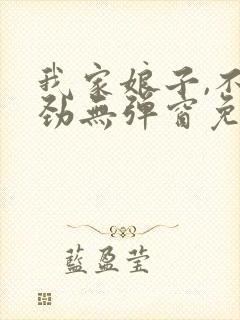 我家娘子,不
劲無彈窗免
藍盈莹